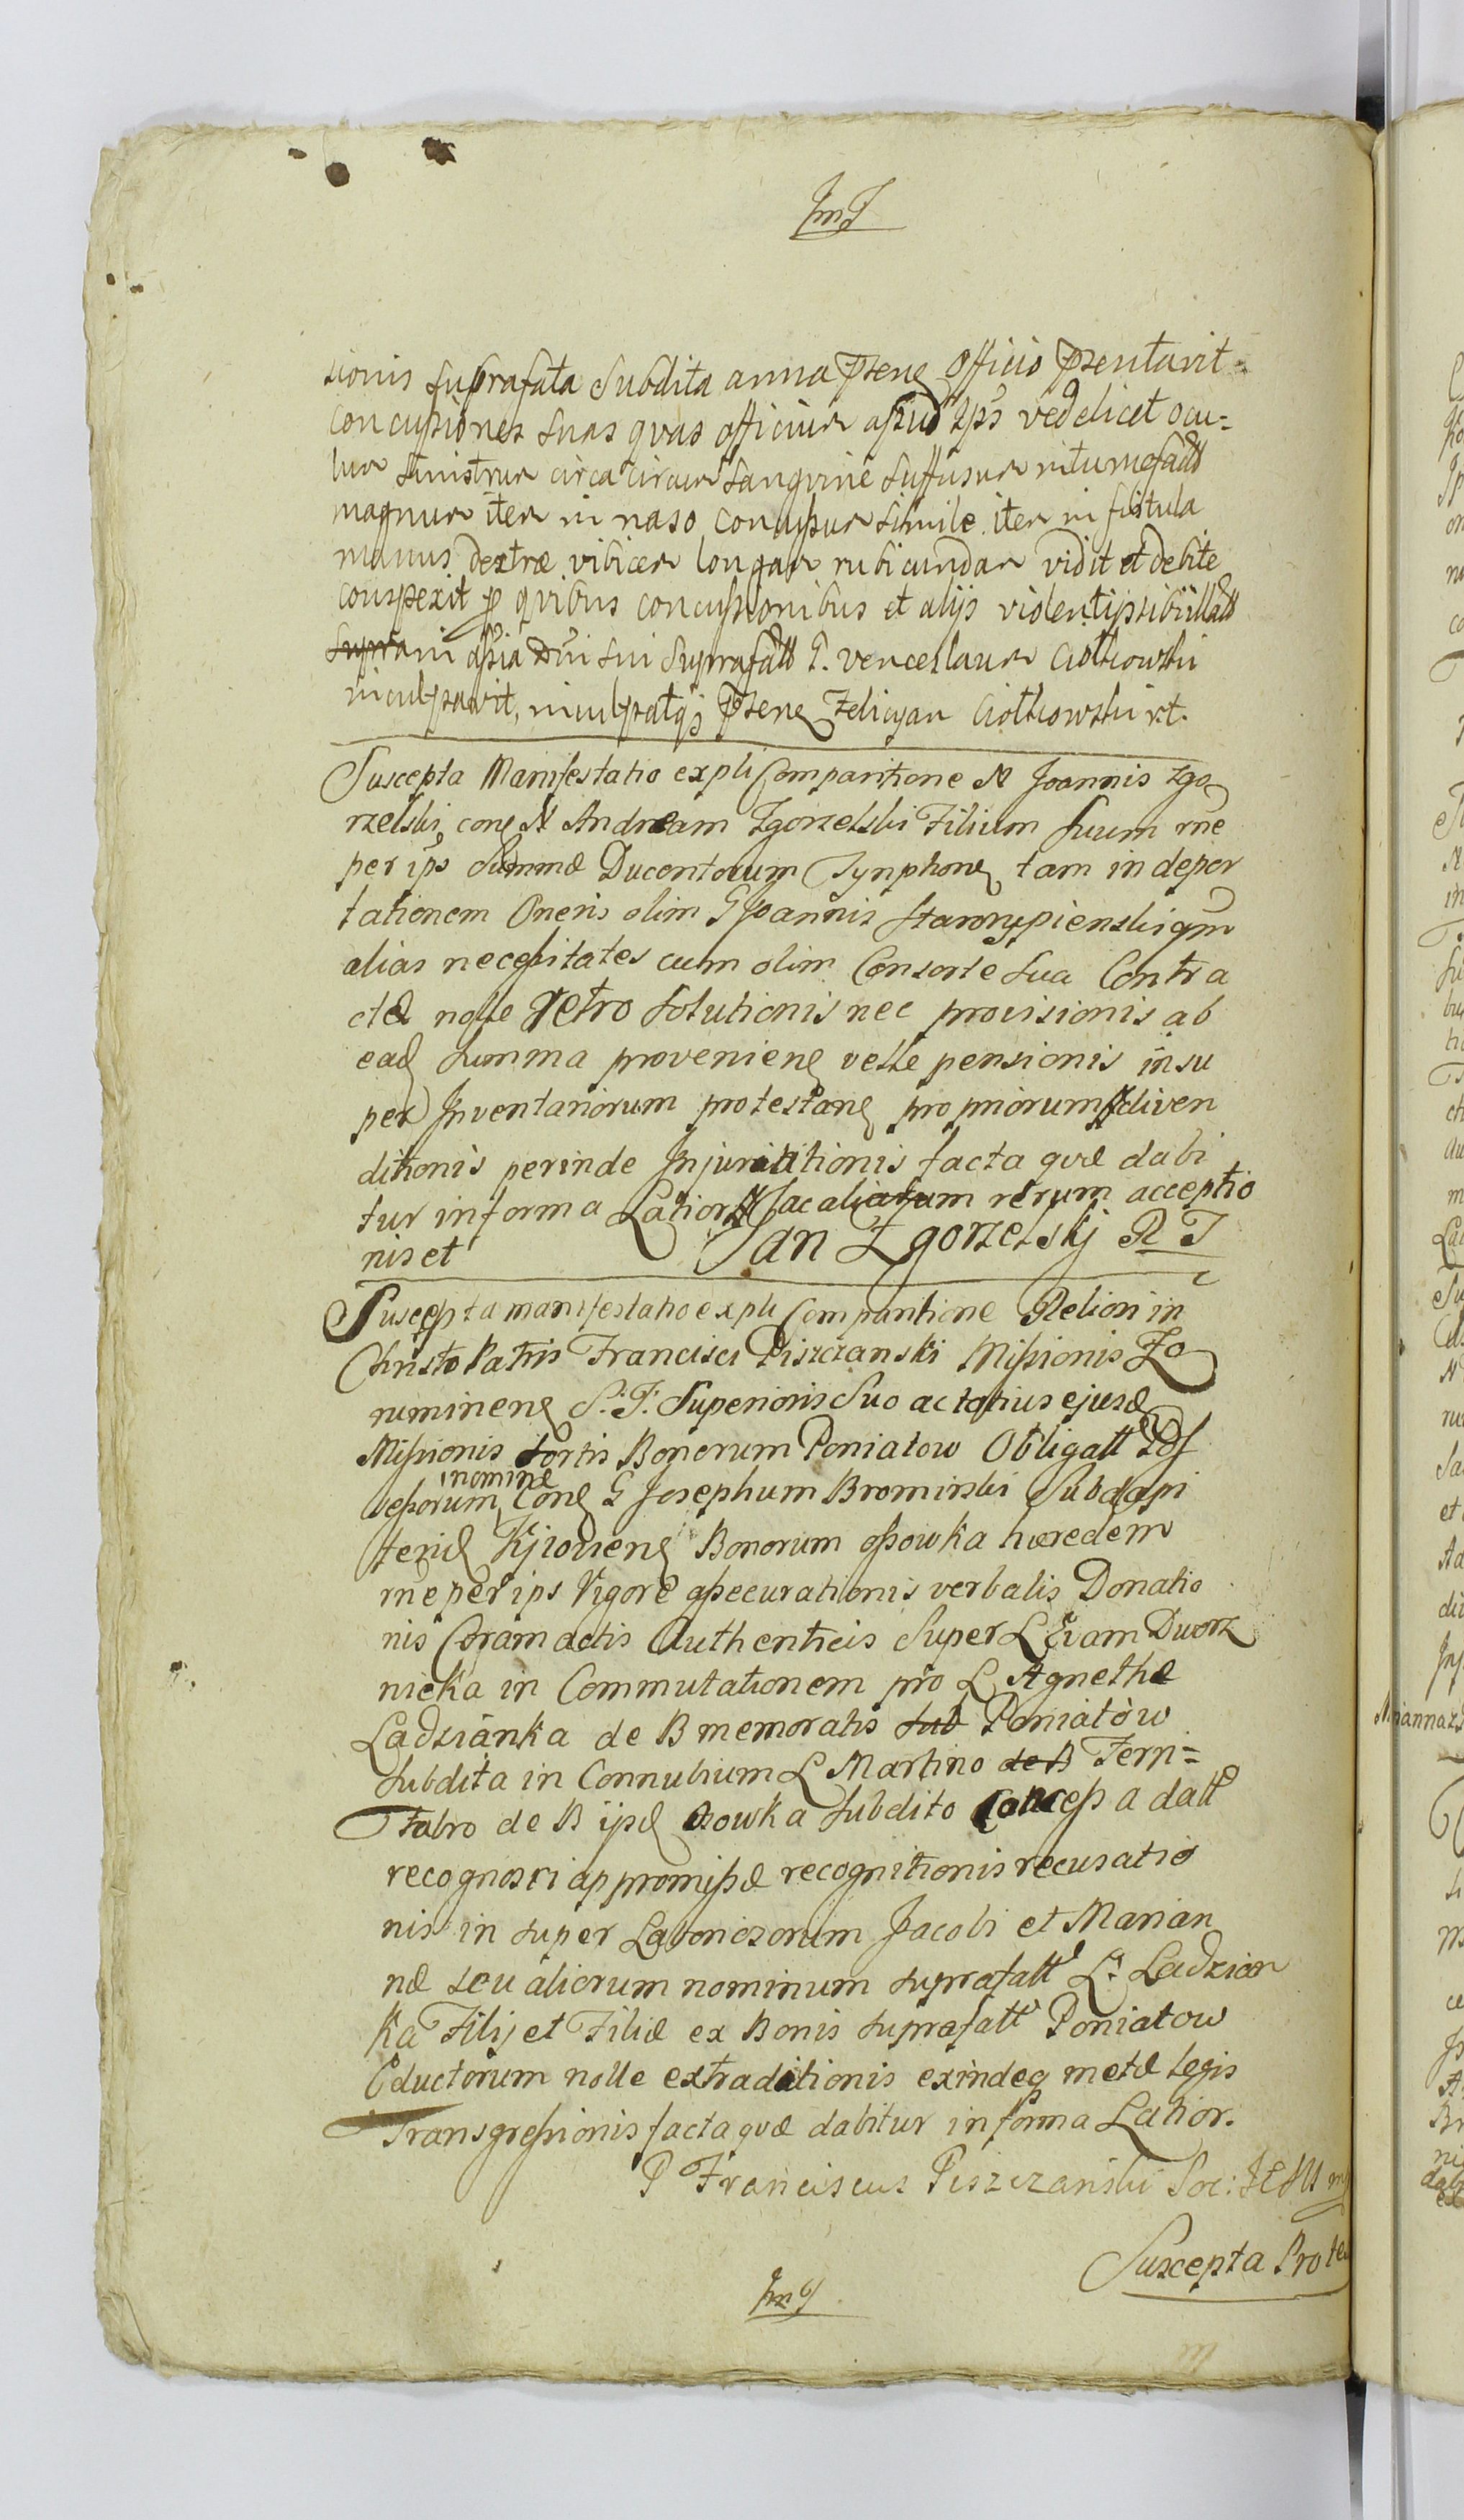 JmJ
sionis suprafata Subdita anna pꝛene Officio pꝛentavit
concussiones suas qvas officiur apud Ips vedelicet ocu=
lur sinistrur circa circur sangvine suffusur intumefactt
magnur iter in naso concussur simile iter in fistula
manus dextræ vibicer longar rubicundar vidit et debite
conspexit p qvibus concussionibus et alijs violentijs sibi illatt
supra in assia Dni sui Suprafatt P. venceslaur Ciołkowski
inculpavit, inculpatqȝ pꝛene Felicyan Ciołkowski rt.
Suscepta Manifestatio expli Comparitione N Joannis Zgo
rzelski cone N Andream Zgorzelski Filium Suum rne
per ips Summæ Ducentorum Tynphone tam in depor
tationem Oneris olim G Joannis Starorypienski qm
alias necessitates cum olim Consorte sua Contra
ctæ nolle retro solutionis nec provisionis ab
ead summa proveniene velle pensionis insu
per Inventariorum protestane propriorum diven
ditionis perinde Injuriatitionis facta qvæ dabi
tur in forma Latiori ac aliarum rerum acceptio
nis et Jan Zgorzelskj R T
Suscepta manifestatio expli Comparitione Reliosi in
Christo Patris Francisci Piszczanski Missionis Zo
ruminene S: J: Superioris Suo ac totius ejusd
Missionis sortis Bonorum Poniatow Obligatt Pos
sessorum nomine Cone G Josephum Brominski Subdapi
terid Kijoviene Bonorum ossowka hæredem
rne per ips Vigore assecurationis verbalis Donatio
nis Coram actis Authenticis Super L Evam Dworz
nicka in Commutationem pro L Agnethæ
Ladzianka de B memoratis sub Poniatòw
Subdita in Connubium L Martino de B Fern=
Fabro de B ijsd Osowka Subdito Concess a datt
recognosci ap promissæ recognitionis recusatio
nis in super Laboriozorum Jacobi et Marian
næ seu aliorum nominum suprafatt L: Ladzian
Ka Filij et Filiæ ex Bonis suprafatt Poniatow
Eductorum nolle extraditionis exindeq metæ legis
Transgressionis facta qvæ dabitur in forma Latior.
P Franciscus Piszczanski Soc: JESU
Suscepta Prote
JmJ